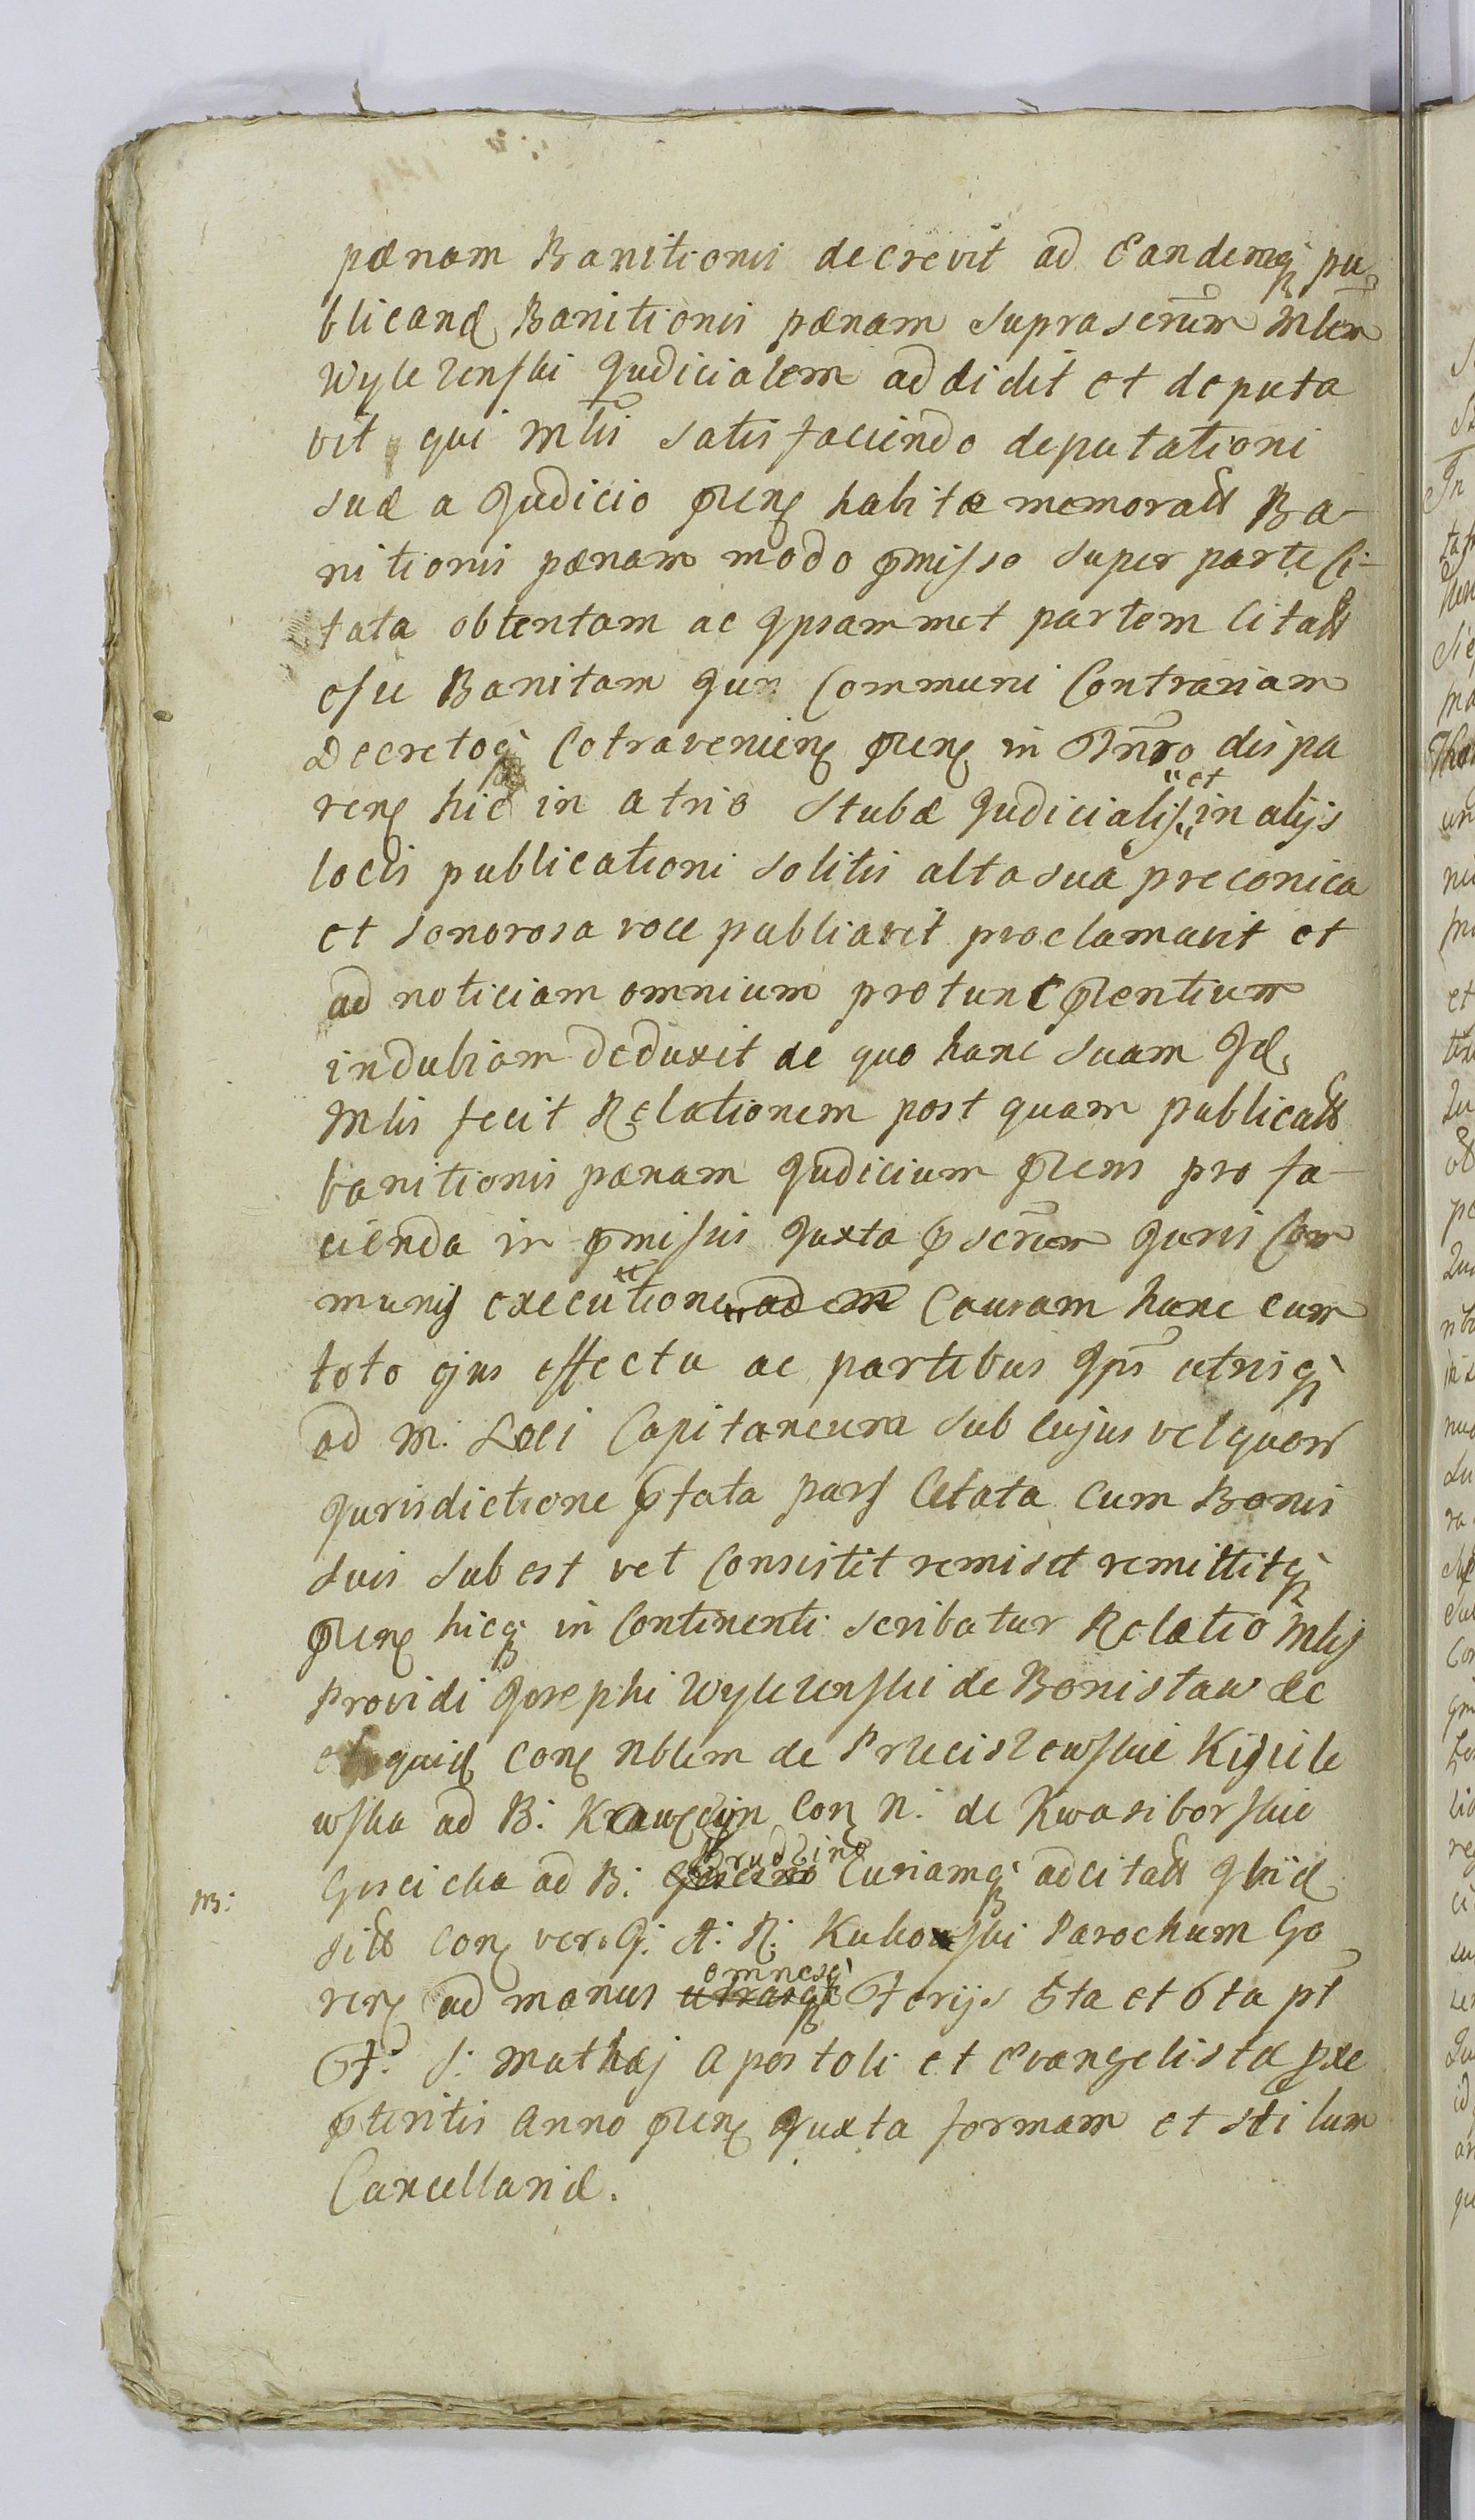 pœnam Banitionis decrevit ad Eandemq; pu-
blicandæ Banitionis pœnam suprascrūm Mlem
Wylezenski Judicialem addidit et deputa
vit qui Mlis satisfaciendo deputationi
suæ a Judicio pñt habitæ memorat Ba-
nitionis pœnam modo pmisso super parte Ci-
tata obtentam ac Ipsammet partem Citat
esse Banitam Juri Communi Contrariam
Decretoq; Cotravenien pñt in Tmro dispa
ren hic in atrio Stubæ Judicialis et in alijs
locis publicationi solitis alta sua preconica
et sonorosa voce publiavit proclamavit et
ad noticiam omnium protunc pñtentium
indubiam deduxit de quo hanc suam Id
Mlis fecit Relationem post quam publicat
banitionis pœnam Judicium pñs pro fa-
cienda in pmissis Juxta pscrum Juris Com
munis executione ad m Causam hanc cum
toto ejus effectu ac partibus Ips utrisq;
ad M. Loci Capitaneum sub cujus vel quor
Jurisdictione pfata pars Citata Cum Bonis
suis subest vel Consistit remisit remittitq;
pñt hicq; in Continenti scribatur Relatio Mlis
Providi Josephi Wylezenski de Bonistaw &c
quia Con Nblem de Przeciszewskie Kisiele
wska ad B. Con N. de Kwasiborskie
Goscicka ad B. Grudzino Curiamq; adcitat
sit Con ver. G. A. R. Kukowski Parochum Go
ren ad manus utrasq; omnesq; Ferijs 5ta et 6ta pt
F. S. Mathæj Apostoli et Evangelistæ pxe
pteritis Anno pñt Juxta formam et stilum
Cancellariæ.
NB: